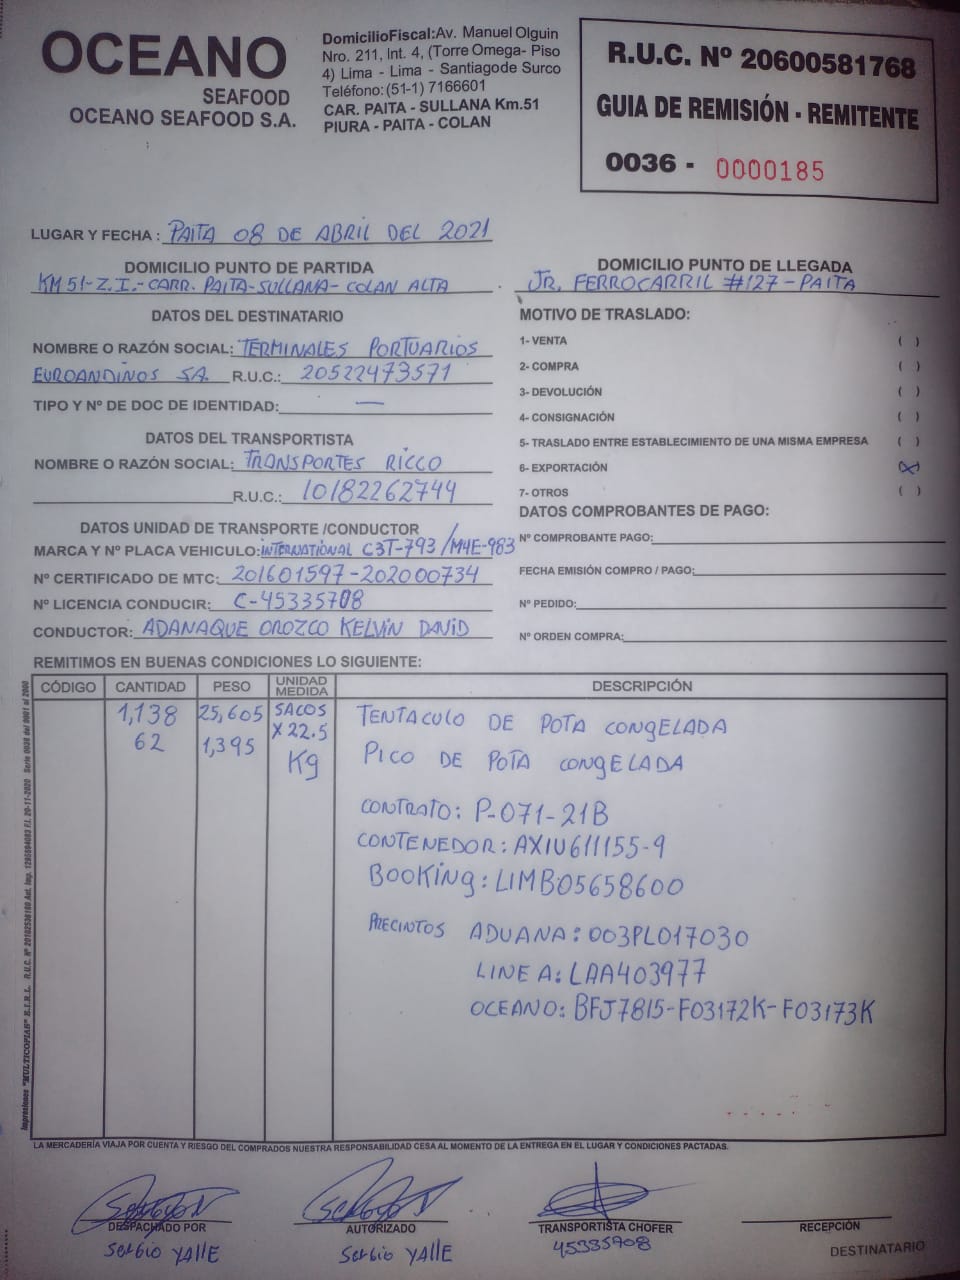 OCEANO
SEAFOOD
OCEANO SEAFOOD S.A.
DomicilioFiscal:Av. Manuel Olguin
Nro. 211, Int. 4, (Torre Omega- Piso
4) Lima - Lima - Santiagode Surco
Teléfono:(51-1) 7166601
CAR. PAITA - SULLANA Km.51
PIURA - PAITA - COLAN
R.U.C. Nº 20600581768
GUIA DE REMISIÓN - REMITENTE
0036 - 0000185
LUGAR Y FECHA : PAITA 08 DE ABRIL DEL 2021
DOMICILIO PUNTO DE PARTIDA
KM 51-Z.I.-CARR. PAITA-SULLANA-COLAN ALTA
DOMICILIO PUNTO DE LLEGADA
JR. FERROCARRIL #127-PAITA
DATOS DEL DESTINATARIO
NOMBRE O RAZÓN SOCIAL: TERMINALES PORTUARIOS
EUROANDINOS SA. R.U.C.: 20522473571
TIPO Y Nº DE DOC DE IDENTIDAD: —
DATOS DEL TRANSPORTISTA
NOMBRE O RAZÓN SOCIAL: TRANSPORTES RICCO
R.U.C.: 10182262744
DATOS UNIDAD DE TRANSPORTE /CONDUCTOR
MARCA Y Nº PLACA VEHICULO: INTERNATIONAL C3T-793 /M4E-983
Nº CERTIFICADO DE MTC: 201601597-202000734
Nº LICENCIA CONDUCIR: C-45335708
CONDUCTOR: ADANAQUE OROZCO KELVIN DAVID
MOTIVO DE TRASLADO:
1- VENTA ( )
2- COMPRA ( )
3- DEVOLUCIÓN ( )
4- CONSIGNACIÓN ( )
5- TRASLADO ENTRE ESTABLECIMIENTO DE UNA MISMA EMPRESA ( )
6- EXPORTACIÓN (X)
7- OTROS ( )
DATOS COMPROBANTES DE PAGO:
Nº COMPROBANTE PAGO:
FECHA EMISIÓN COMPRO / PAGO:
Nº PEDIDO:
Nº ORDEN COMPRA:
REMITIMOS EN BUENAS CONDICIONES LO SIGUIENTE:
CÓDIGO CANTIDAD PESO UNIDAD MEDIDA DESCRIPCIÓN
1,138 25,605 SACOS TENTACULO DE POTA CONGELADA
62 1,395 X 22.5 PICO DE POTA CONGELADA
Kg
CONTRATO: P-071-21B
CONTENEDOR: AXIU611155-9
BOOKING: LIMB05658600
PRECINTOS ADUANA: 003PL017030
LINEA: LAA403977
OCEANO: BFJ7815-F03172K-F03173K
Impresiones "MULTICOPIAS" E.I.R.L. R.U.C. Nº 20102536180 Aut. Imp. 1295594083 F.I. 20-11-2020 Serie 0036 del 0001 al 2000
LA MERCADERÍA VIAJA POR CUENTA Y RIESGO DEL COMPRADOS NUESTRA RESPONSABILIDAD CESA AL MOMENTO DE LA ENTREGA EN EL LUGAR Y CONDICIONES PACTADAS.
DESPACHADO POR
Sergio YALLE
AUTORIZADO
Sergio YALLE
TRANSPORTISTA CHOFER
45335708
RECEPCIÓN
DESTINATARIO